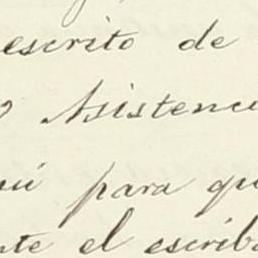 escrito de
Asistenci
para qu
nte el escriba